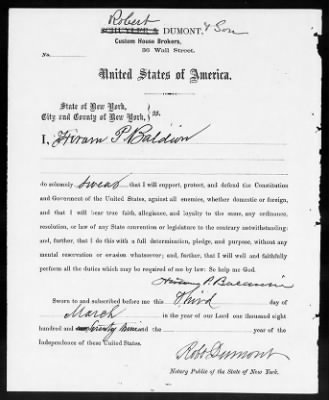 Robert
DUMONT, & Son
Custom House Brokers,
36 Wall Street.
No.
United States of America.
State of New York,
City and County of New York, } ss.
I, Hiram P. Baldwin
do solemnly swear that I will support, protect, and defend the Constitution
and Government of the United States, against all enemies, whether domestic or foreign,
and that I will bear true faith, allegiance, and loyalty to the same, any ordinance,
resolution, or law of any State convention or legislature to the contrary notwithstanding:
and, further, that I do this with a full determination, pledge, and purpose, without any
mental reservation or evasion whatsoever; and, further, that I will well and faithfully
perform all the duties which may be required of me by law: So help me God.
Hiram P. Baldwin
Sworn to and subscribed before me this Third day of
March in the year of our Lord one thousand eight
hundred and Seventy nine and the year of the
Independence of these United States.
Robt Dumont
Notary Public of the State of New York.